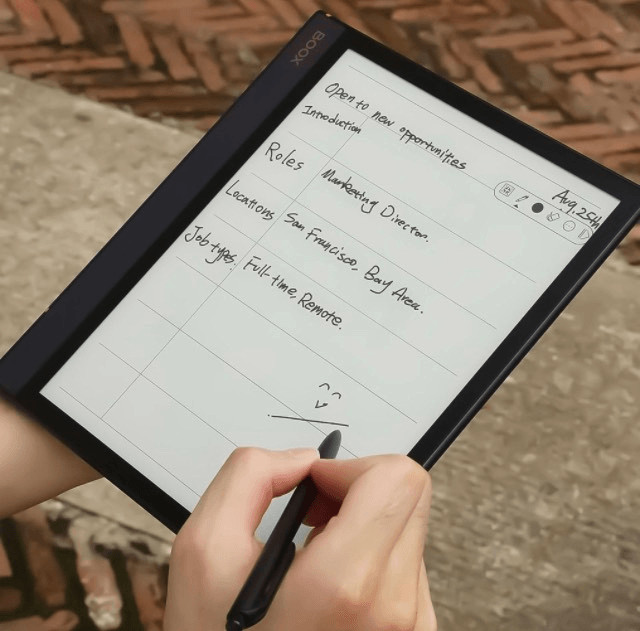 BOOX
Open to new opportunities
Introduction
Aug.25th
Roles Marketing Director.
Locations San Francisco, Bay Area.
Job types. Full-time, Remote.